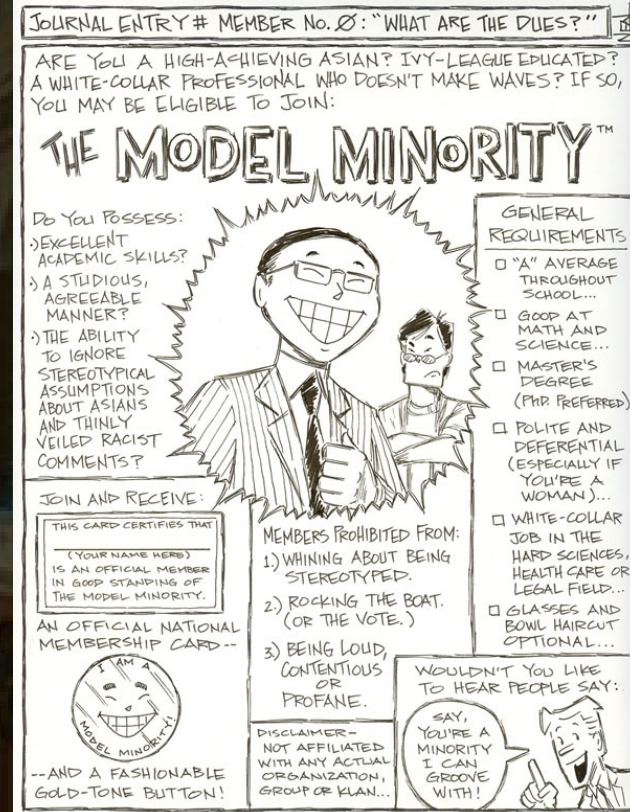 JOURNAL ENTRY # MEMBER NO. Ø: "WHAT ARE THE DUES?"
ARE YOU A HIGH-ACHIEVING ASIAN? IVY-LEAGUE EDUCATED?
A WHITE-COLLAR PROFESSIONAL WHO DOESN'T MAKE WAVES? IF SO,
YOU MAY BE ELIGIBLE TO JOIN:
THE MODEL MINORITY™
DO YOU POSSESS:
·) EXCELLENT
ACADEMIC SKILLS?
·) A STUDIOUS,
AGREEABLE
MANNER?
·) THE ABILITY
TO IGNORE
STEREOTYPICAL
ASSUMPTIONS
ABOUT ASIANS
AND THINLY
VEILED RACIST
COMMENTS?
GENERAL
REQUIREMENTS
"A" AVERAGE
THROUGHOUT
SCHOOL...
GOOD AT
MATH AND
SCIENCE...
MASTER'S
DEGREE
(PHD PREFERRED)
POLITE AND
DEFERENTIAL
(ESPECIALLY IF
YOU'RE A
WOMAN)...
WHITE-COLLAR
JOB IN THE
HARD SCIENCES,
HEALTH CARE OR
LEGAL FIELD...
GLASSES AND
BOWL HAIRCUT
OPTIONAL...
JOIN AND RECEIVE:
THIS CARD CERTIFIES THAT
(YOUR NAME HERE)
IS AN OFFICIAL MEMBER
IN GOOD STANDING OF
THE MODEL MINORITY.
AN OFFICIAL NATIONAL
MEMBERSHIP CARD--
I AM A
MODEL MINORITY!
--AND A FASHIONABLE
GOLD-TONE BUTTON!
MEMBERS PROHIBITED FROM:
1.) WHINING ABOUT BEING
STEREOTYPED.
2.) ROCKING THE BOAT.
(OR THE VOTE.)
3.) BEING LOUD,
CONTENTIOUS
OR
PROFANE.
DISCLAIMER-
NOT AFFILIATED
WITH ANY ACTUAL
ORGANIZATION,
GROUP OR KLAN...
WOULDN'T YOU LIKE
TO HEAR PEOPLE SAY:
SAY,
YOU'RE A
MINORITY
I CAN
GROOVE
WITH!